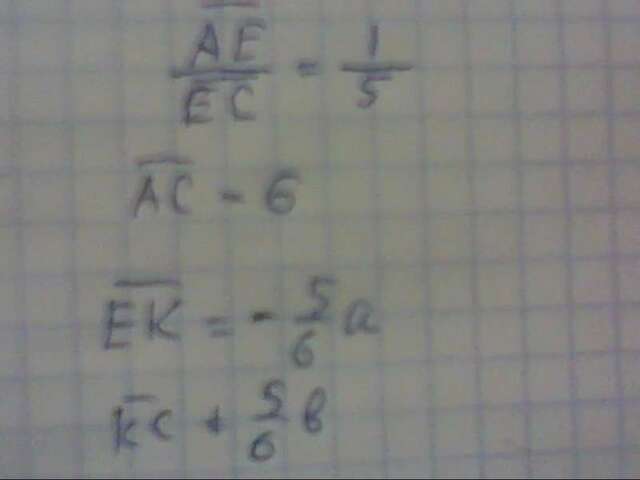 AE/EC = 1/5
AC - 6
EK = - 5/6 a
KC + 5/6 в